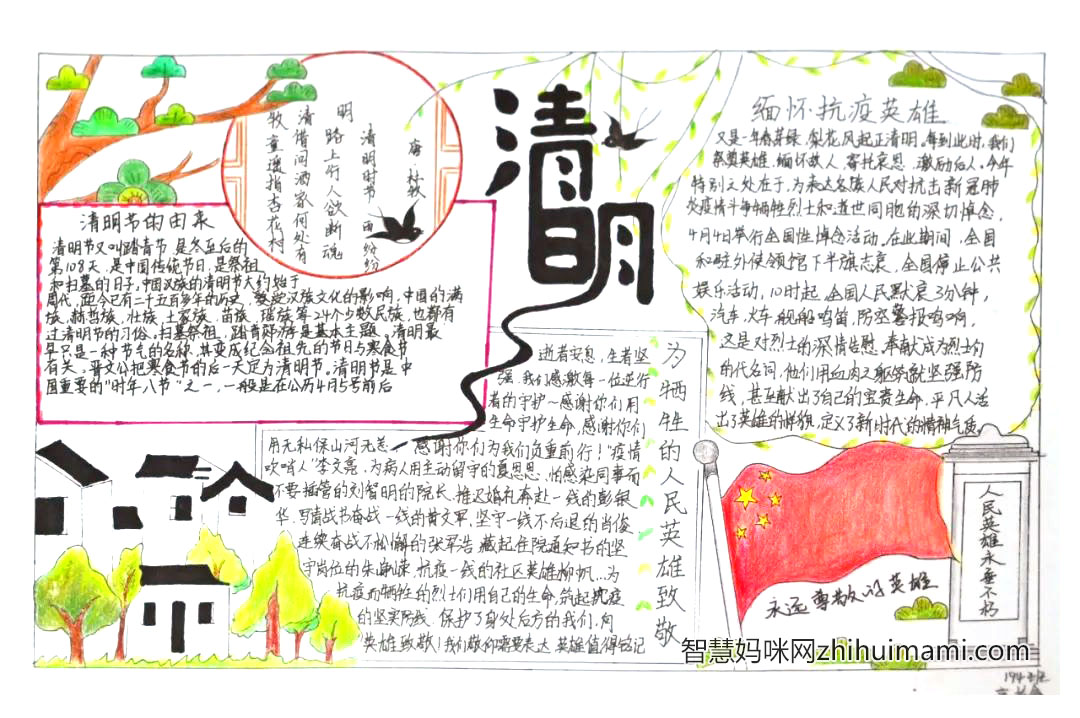 清明
唐 杜牧
清明时节雨纷纷
路上行人欲断魂
借问酒家何处有
牧童遥指杏花村
清明节的由来
清明节又叫踏青节,是冬至后的
第108天,是中国传统节日,是祭祖
和扫墓的日子,中国汉族的清明节大约始于
周代,距今已有二千五百多年的历史,受汉族文化的影响,中国的满
族、赫哲族、壮族、土家族、苗族、瑶族等24个少数民族,也都有
过清明节的习俗,扫墓祭祖、踏青郊游是基本主题,清明最
早只是一种节气的名称,其变成纪念祖先的节日与寒食节
有关,晋文公把寒食节的后一天定为清明节,清明节是中
国重要的"时年八节"之一,一般是在公历4月5号前后
缅怀抗疫英雄
又是一年春草绿,梨花风起正清明,每到此时,我们
祭奠英雄、缅怀故人、寄托哀思、激励后人。今年
特别之处在于,为表达各族人民对抗击新冠肺
炎疫情斗争牺牲烈士和逝世同胞的深切悼念,
4月4日举行全国性悼念活动,在此期间,全国
和驻外使领馆下半旗志哀,全国停止公共
娱乐活动,10时起,全国人民默哀3分钟,
汽车、火车、舰船鸣笛,防空警报鸣响,
这是对烈士的深情告慰,奉献成为烈士们
的代名词,他们用血肉之躯筑就坚强防
线,甚至献出了自己的宝贵生命,平凡人活
出了英雄的模貌,定义了新时代的精神气质
逝者安息,生者坚
强,我们感激每一位逆行
者的守护~感谢你们用
生命守护生命,感谢你们
用无私保山河无恙 感谢你们为我们负重前行!"疫情
吹哨人"李文亮,为病人用主动留守的夏思思,怕感染同事而
不要插管的刘智明的院长,推迟婚礼奔赴一线的彭银
华,写请战书奋战一线的黄文军,坚守一线不后退的肖俊
连续奋战不松懈的张军浩,藏起住院通知书的坚
守岗位的朱峥嵘,抗疫一线的社区英雄柳帆...为
抗疫而牺牲的烈士们用自己的生命,筑起抗疫
的坚实防线,保护了身处后方的我们,向
英雄致敬!我们敬仰需要表达,英雄值得铭记
为牺牲的人民英雄致敬
永远尊敬人民英雄
人民英雄永垂不朽
智慧妈咪网zhihuimami.com